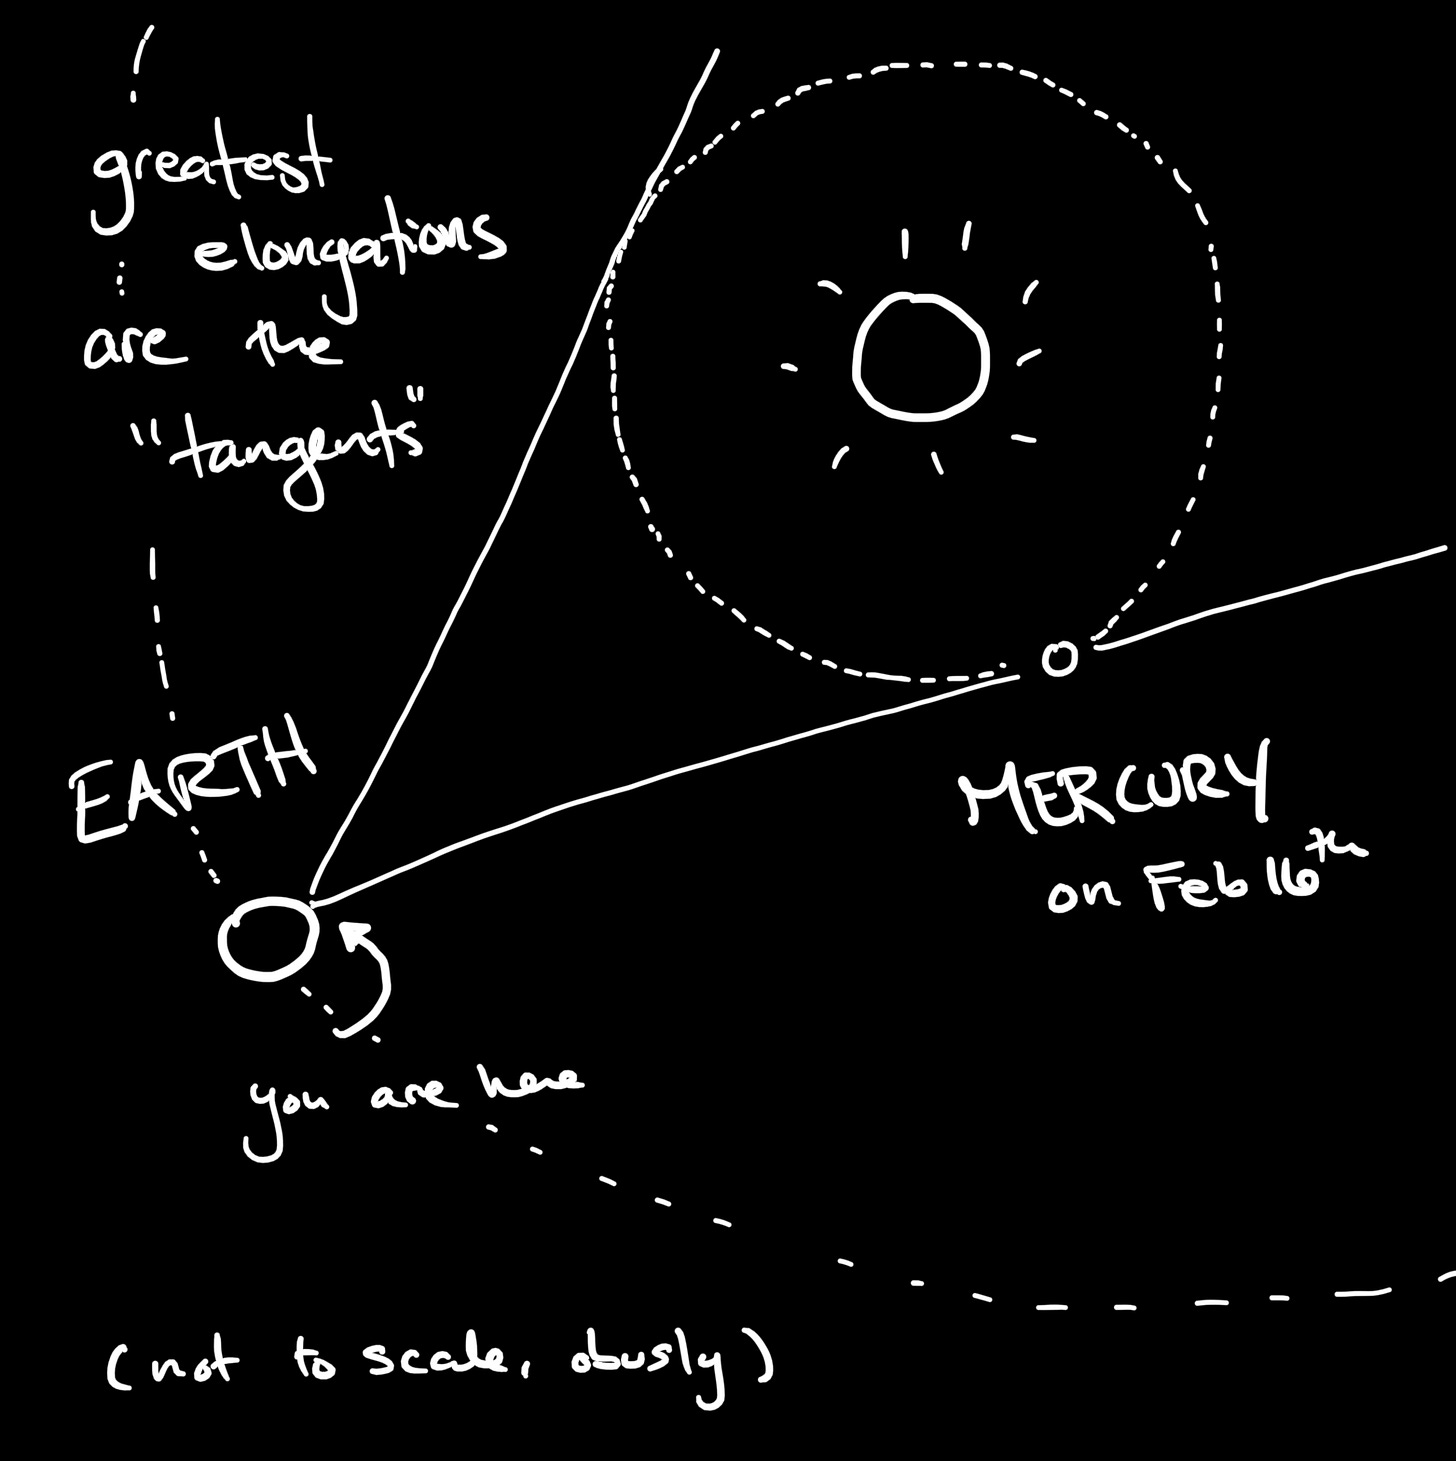 greatest
elongations
are the
"tangents"
EARTH
MERCURY
on Feb 16th
you are here
(not to scale, obusly)